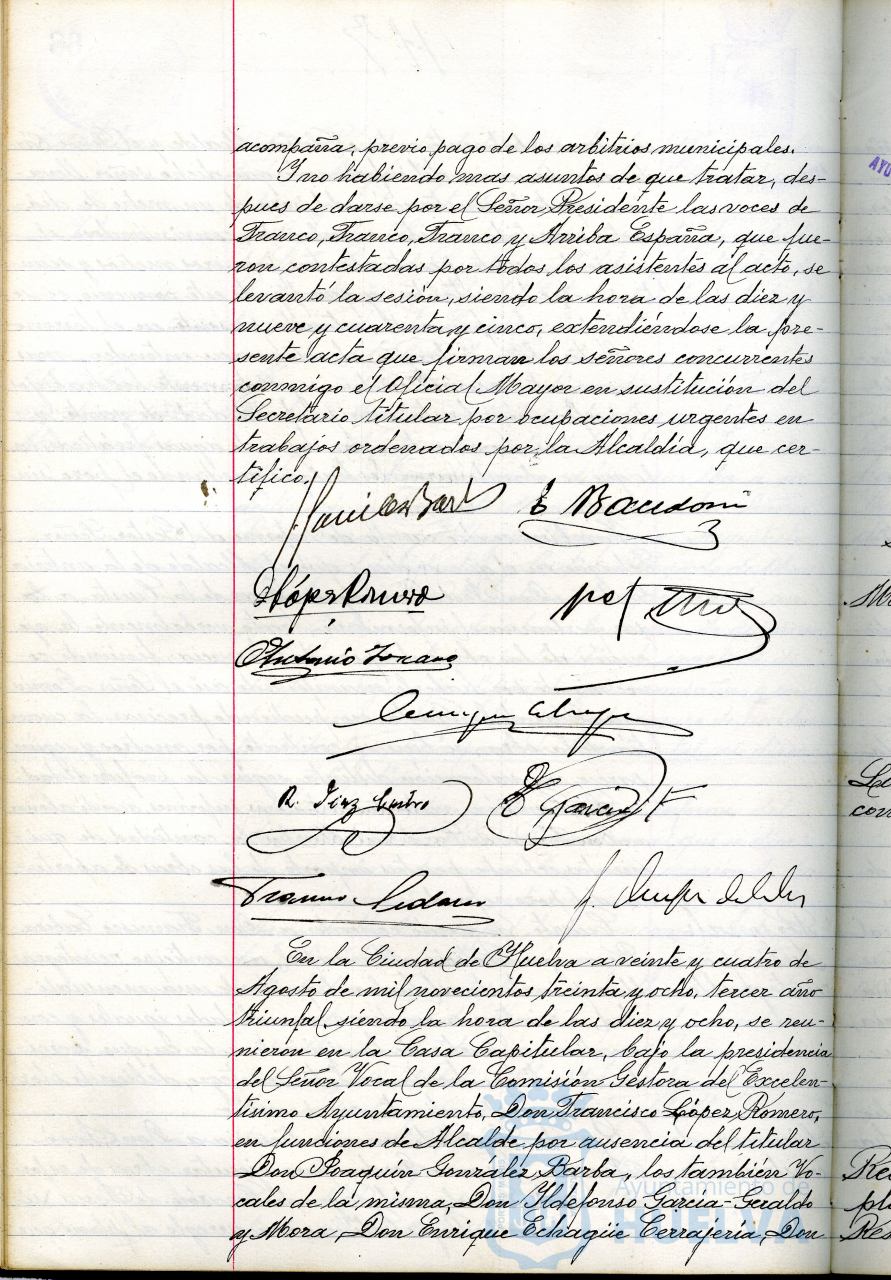 acompaña, previo pago de los arbitrios municipales.
Y no habiendo mas asuntos de que tratar, des-
pues de darse por el Señor Presidente las voces de
Franco, Franco, Franco y Arriba España, que fue-
ron contestadas por todos los asistentes al acto, se
levantó la sesión, siendo la hora de las diez y
nueve y cuarenta y cinco, extendiéndose la pre-
sente acta que firman los señores concurrentes
conmigo el Oficial Mayor en sustitución del
Secretario titular por ocupaciones urgentes en
trabajos ordenados por la Alcaldía, que cer-
tifico.
López Romero
Antonio
R.
García
En la Ciudad de Huelva a veinte y cuatro de
Agosto de mil novecientos treinta y ocho, tercer año
triunfal, siendo la hora de las diez y ocho, se reu-
nieron en la Casa Capitular, bajo la presidencia
del Señor Vocal de la Comisión Gestora del Excelen-
tísimo Ayuntamiento, Don Francisco López Romero,
en funciones de Alcalde por ausencia del titular
Don Joaquín González Barba, los también Vo-
cales de la misma, Don Ildefonso García-Geraldo
y Mora, Don Enrique Echagüe Cerrajería, Don
Ayuntamiento de
HUELVA